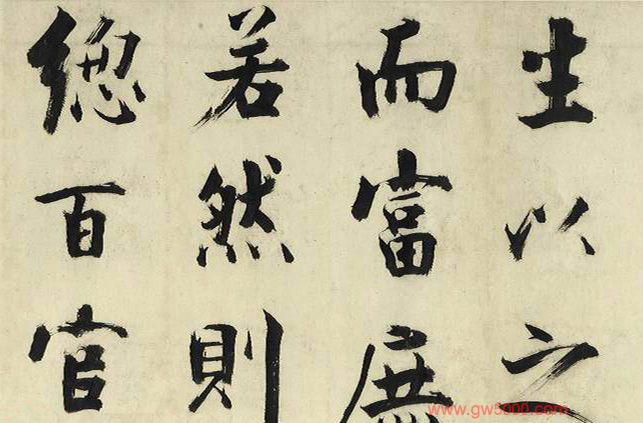 生以之
而富庶
若然則
總百官
www.gw5000.com